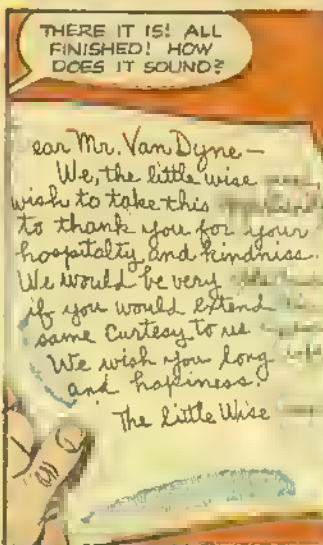 THERE IT IS! ALL
FINISHED! HOW
DOES IT SOUND?
ear Mr. Van Dyne—
We, the little wise
wish to take this
to thank you for your
hospitalty and kindniss.
We would be very
if you would extend
same curtesy to us
We wish you long
and happiness.
The Little Wise